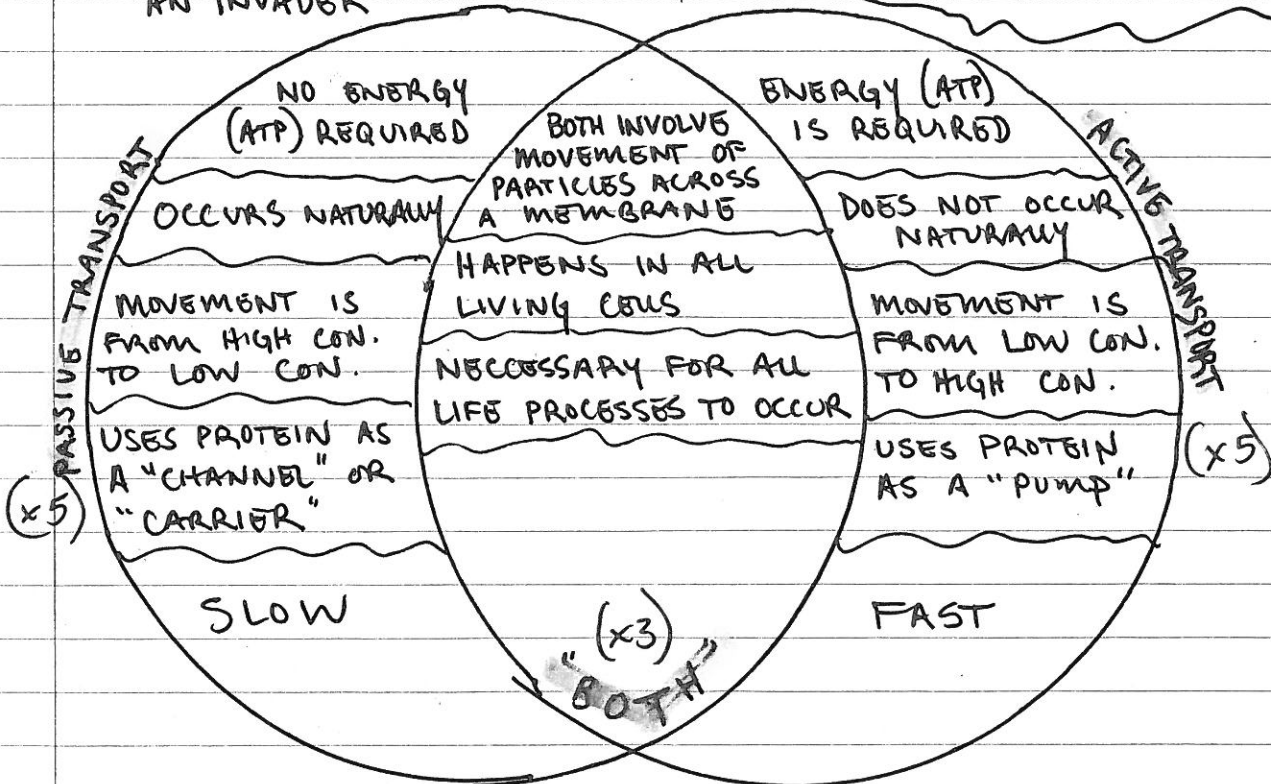 AN INVADER
PASSIVE TRANSPORT
(x5)
NO ENERGY
(ATP) REQUIRED
OCCURS NATURALLY
MOVEMENT IS
FROM HIGH CON.
TO LOW CON.
USES PROTEIN AS
A "CHANNEL" OR
"CARRIER"
SLOW
BOTH INVOLVE
MOVEMENT OF
PARTICLES ACROSS
A MEMBRANE
HAPPENS IN ALL
LIVING CELLS
NECCESSARY FOR ALL
LIFE PROCESSES TO OCCUR
(x3)
"BOTH"
ENERGY (ATP)
IS REQUIRED
DOES NOT OCCUR
NATURALLY
MOVEMENT IS
FROM LOW CON.
TO HIGH CON.
USES PROTEIN
AS A "PUMP"
FAST
ACTIVE TRANSPORT
(x5)